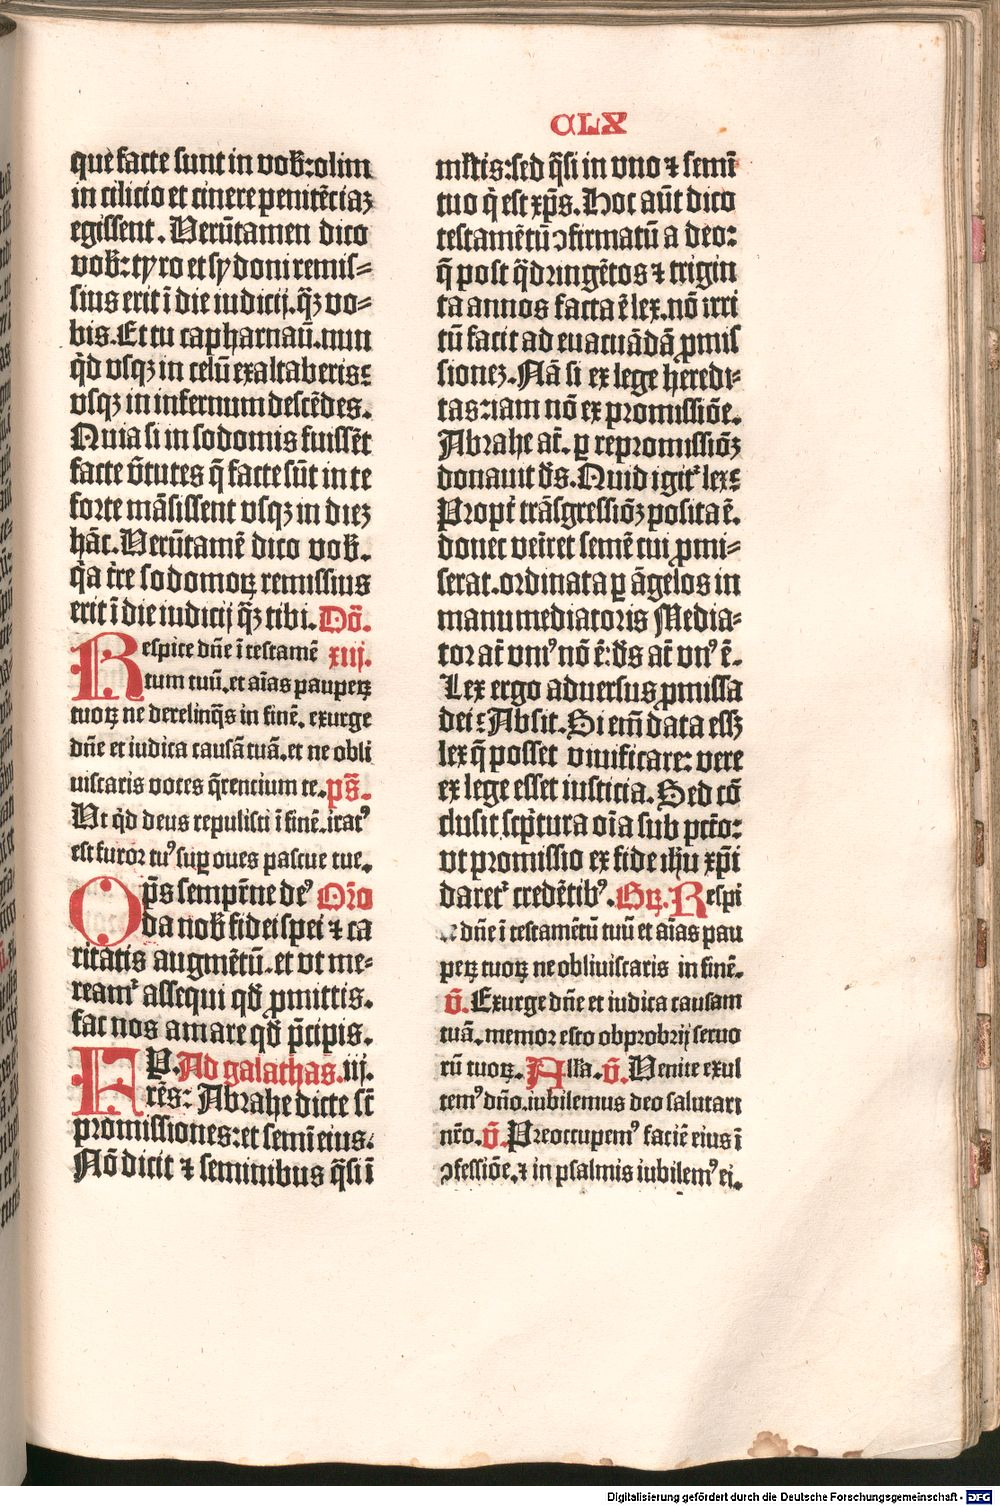 CLX
que facte sunt in vob̄: olim
in cilicio et cinere penitēciaʒ
egissent. Verūtamen dico
vob̄: tyro et sydoni remis⸗
sius erit ī die iudicij. q̄ʒ vo⸗
bis. Et tu capharnaū. nun
q̇d vsqʒ in celū exaltaberis:
vsqʒ in infernum descēdes.
Quia si in sodomis fuissēt
facte v̄tutes q̄ facte sūt in te
forte māsissent vsqʒ in dieʒ
hāc. Verūtamē dico vob̄.
q̇a t̄re sodomoꝝ remissius
erit ī die iudicij q̄ʒ tibi. Dō.
Respice dn̄e ī testamē xiij.
tum tuū. et aīas paupeꝝ
tuoꝝ ne derelinq̄s in finē. exurge
dn̄e et iudica causā tuā. et ne obli
uiscaris voces q̄rencium te. ps̄.
Vt q̇d deus repulisti ī finē. iratꝰ
est furor tuꝰ suꝑ oues pascue tue.
Op̄s sempit̄ne deꝰ Orō
da nob̄ fidei spei ⁊ ca
ritatis augmētū. et vt me⸗
reamᷣ assequi qḋ ꝓmittis.
fac nos amare qḋ p̄cipis.
Ep. Ad galathas. iij.
Fr̄es: Abrahe dicte st̄
promissiones: et semī eius.
Nō dicit ⁊ seminibus q̄si ī
ml̄tis: sed q̄si in vno ⁊ semī
tuo q̇ est xp̄s. Hoc aūt dico
testamētū ꝯfirmatū a deo:
q̄ post q̄dringētos ⁊ trigin
ta annos facta ē lex. nō irri
tū facit ad euacuādā ꝓmis
sioneʒ. Nā si ex lege heredi⸗
tas: iam nō ex promissiōe.
Abrahe at̄. ꝑ repromissiōʒ
donauit d̄s. Quid igitᷣ lex:
Propt̄ trāsgressiōʒ posita ē.
donec veīret semē cui ꝓmi⸗
serat. ordinata ꝑ āgelos in
manu mediatoris Media⸗
tor at̄ vniꝰ nō ē: d̄s at̄ vnꝰ ē.
Lex ergo aduersus ꝓmissa
dei: Absit. Si em̄ data essʒ
lex q̄ posset viuificare: vere
ex lege esset iusticia. Sed cō
clusit sc̄ptura oīa sub pctō:
vt promissio ex fide ih̄u xp̄i
daretᷣ credētibꝰ. Gꝝ. Respi
ce dn̄e ī testamētū tuū et aīas pau
peꝝ tuoꝝ ne obliuiscaris in finē.
v̄. Exurge dn̄e et iudica causam
tuā. memor esto obprobrij seruo
rū tuoꝝ. All̄a. v̄. Venite exul
temꝰ dn̄o. iubilemus deo salutari
nr̄o. v̄. Preoccupemꝰ faciē eius ī
ꝯfessiōe. ⁊ in psalmis iubilemꝰ ei.
Digitalisierung gefördert durch die Deutsche Forschungsgemeinschaft - DFG